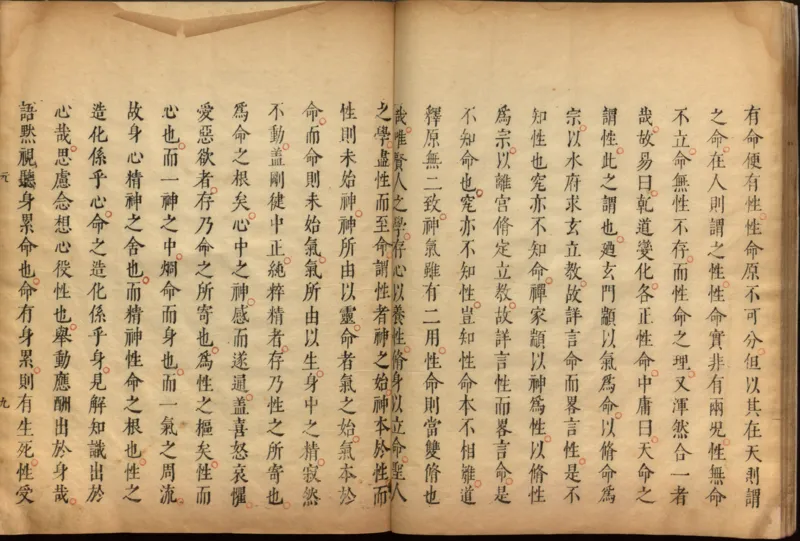 有命便有性性命原不可分但以其在天則謂
之命在人則謂之性性命實非有兩況性無命
不立命無性不存而性命之理又渾然合一者
哉故易曰乾道變化各正性命中庸曰天命之
謂性此之謂也廼玄門顓以氣爲命以脩命爲
宗以水府求玄立教故詳言命而畧言性是不
知性也究亦不知命禪家顓以神爲性以脩性
爲宗以離宮脩定立教故詳言性而畧言命是
不知命也究亦不知性豈知性命本不相離道
釋原無二致神氣雖有二用性命則當雙脩也
哉惟賢人之學存心以養性脩身以立命聖人
之學盡性而至命謂性者神之始神本於性而
性則未始神神所由以靈命者氣之始氣本於
命而命則未始氣氣所由以生身中之精寂然
不動蓋剛健中正純粹精者存乃性之所寄也
爲命之根矣心中之神感而遂通蓋喜怒哀懼
愛惡欲者存乃命之所寄也爲性之樞矣性而
心也而一神之中烱命而身也而一氣之周流
故身心精神之舍也而精神性命之根也性之
造化係乎心命之造化係乎身見解知識出於
心哉思慮念想心役性也舉動應酬出於身哉
語默視聽身累命也命有身累則有生死性受
元
九